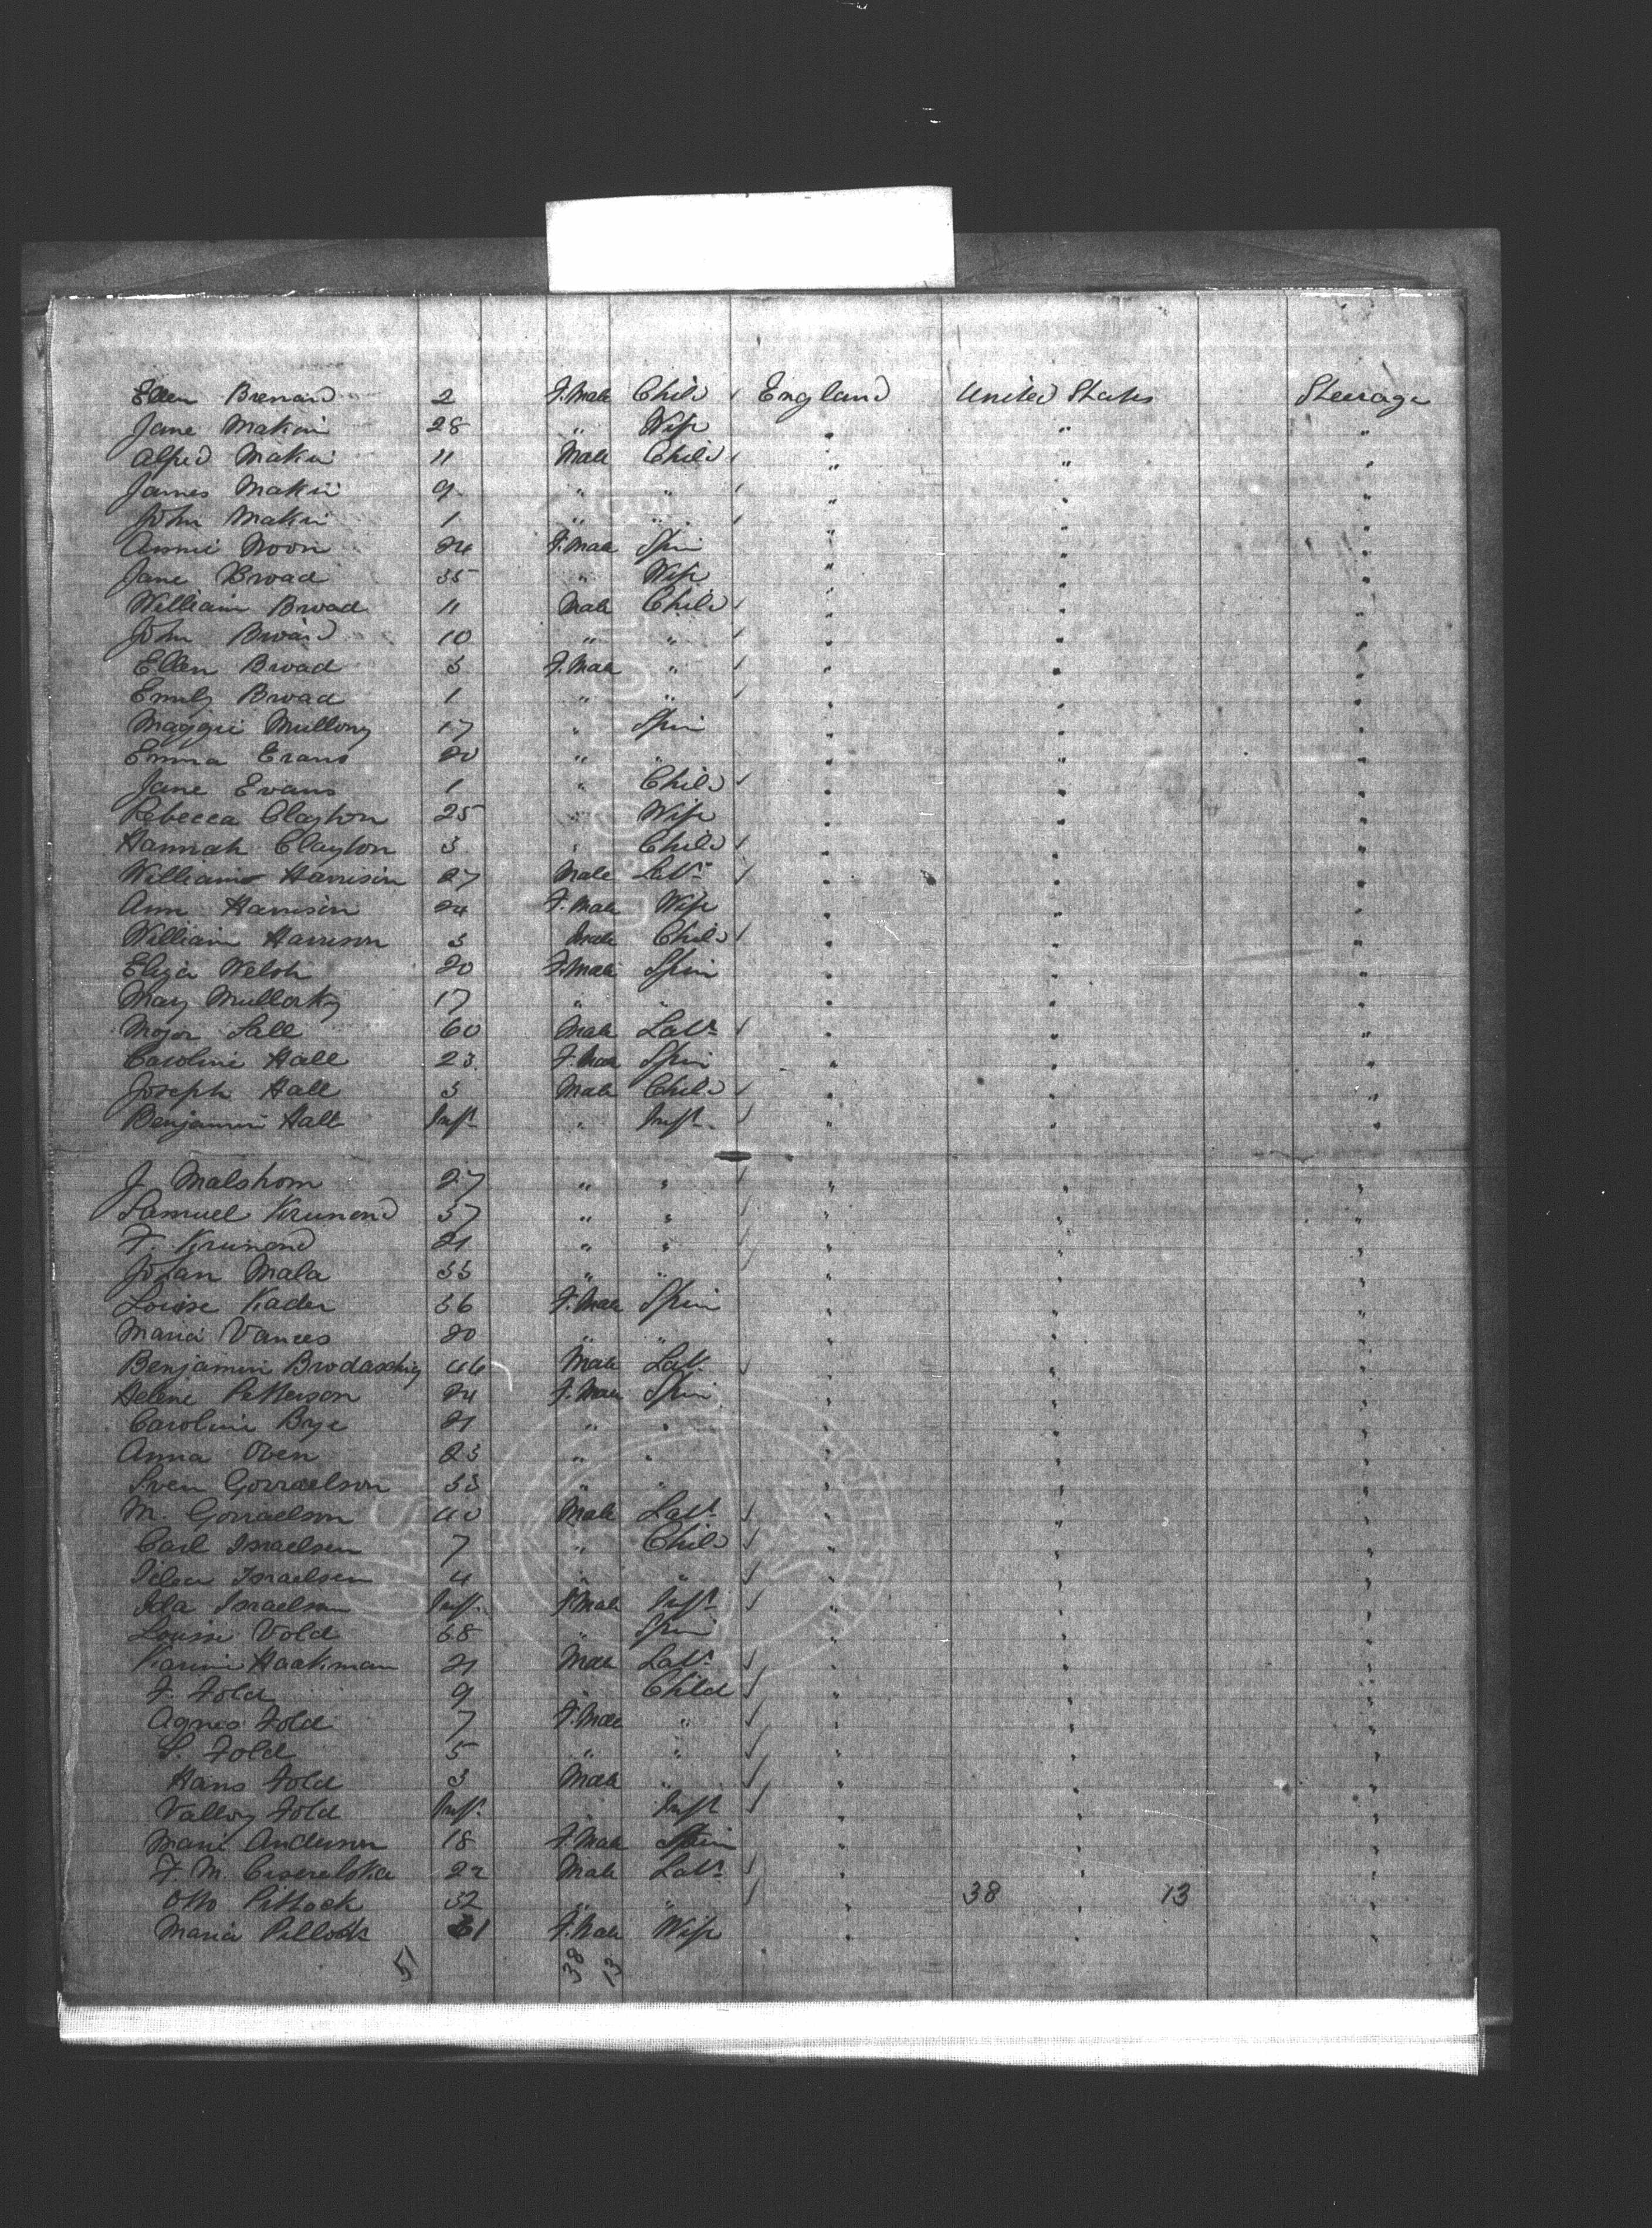 Ellen Brenand 2 F.Male Child England United States Steerage
Jane Makin 28 " Wife " " "
Alfred Makin 11 Male Child " " "
James Makin 9 " " " " "
John Makin 1 " " " " "
Annie Noon 24 F.Male Spin " " "
Jane Broad 35 " Wife " " "
William Broad 11 Male Child " " "
John Broad 10 " " " " "
Ellen Broad 3 F.Male " " " "
Emily Broad 1 " " " " "
Maggie Mullony 17 " Spin " " "
Emma Evans 20 " " " " "
Jane Evans 1 " Child " " "
Rebecca Clayton 25 " Wife " " "
Hannah Clayton 3 " Child " " "
William Harrison 27 Male Labr " " "
Ann Harrison 24 F.Male Wife " " "
William Harrison 3 Male Child " " "
Eliza Welsh 20 F.Male Spin " " "
Mary Mullarky 17 " " " " "
Major Hall 60 Male Labr " " "
Caroline Hall 23 F.Male Spin " " "
Joseph Hall 3 Male Child " " "
Benjamin Hall Inft " Inft " " "
J Malshom 27 " " " " "
Samuel Krumond 37 " " " " "
F. Krumond 21 " " " " "
Johan Mala 33 " " " " "
Louise Kader 36 F.Male Spin " " "
Maria Vances 20 " " " " "
Benjamin 46 Male Labr " " "
Helene Petterson 24 F.Male Spin " " "
Caroline Brye 21 " " " " "
Anna Oven 23 " " " " "
Sven Gorraelson 33 " " " " "
M. Gorraelson 40 Male Labr " " "
Carl Israelsen 7 " Child " " "
Israelsen 4 " " " " "
Ida Israelsen Inft F.Male Inft " " "
Louise Vold 38 " Spin " " "
Karini Haakman 21 Male Labr " " "
F. Fold 9 " Child " " "
Agnes Fold 7 F.Male " " " "
S. Fold 5 " " " " "
Hans Fold 3 Male " " " "
Fold Inft " Inft " " "
Marie Anderson 18 F.Male Spin " " "
F. M. 22 Male Labr " " "
Otto Pittock 32 " " " 38 " 13 "
Maria 31 F.Male Wife " " "
51 38 13